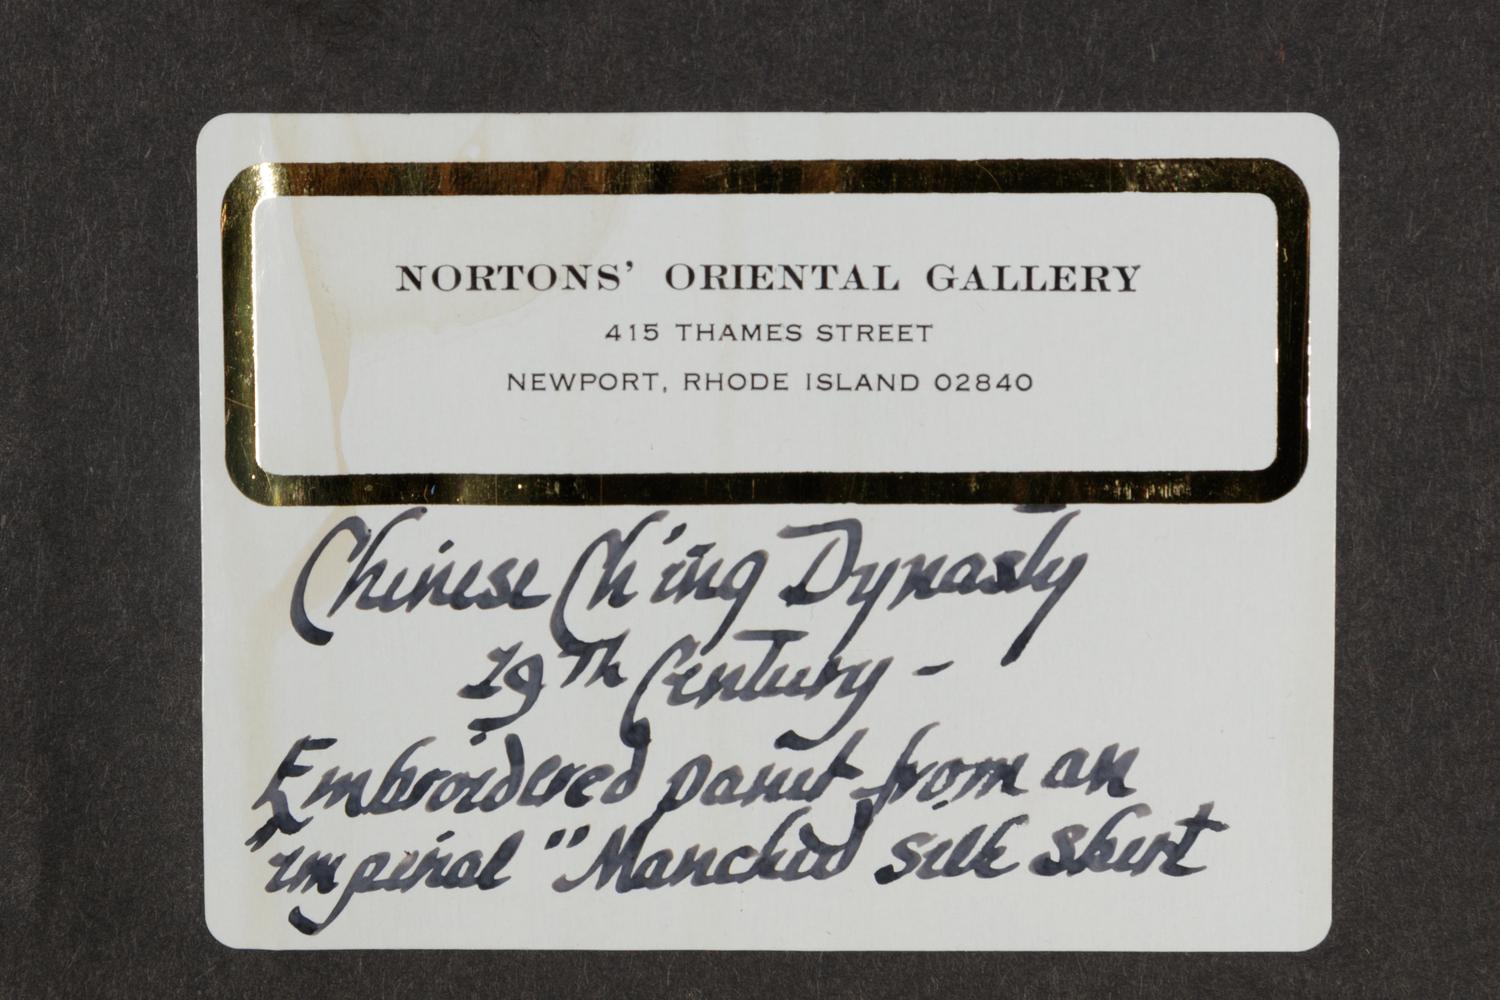 NORTONS' ORIENTAL GALLERY
415 THAMES STREET
NEWPORT, RHODE ISLAND 02840
Chinese Ch'ing Dynasty
19th Century -
Embroidered panel from an
imperial "Manchu" silk skirt